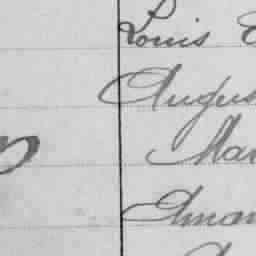 Louis
Augus
Mar
Aman